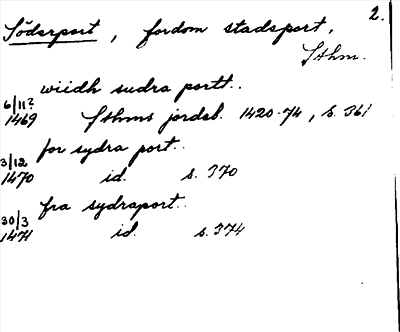 2.
Söderport, fordom stadsport,
Sthm.
wiidh sudra portt..
6/11?
1469 Sthms jordeb. 1420-74, s. 361
for sydra port..
3/12
1470 id. s. 370
fra sydraport..
30/3
1471 id. s. 374